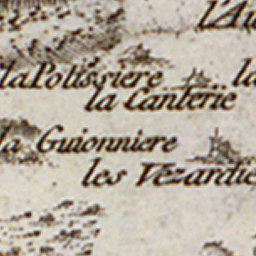 l'Au
la Polissiere la
la Canterie
la Guionniere
les Vezardie